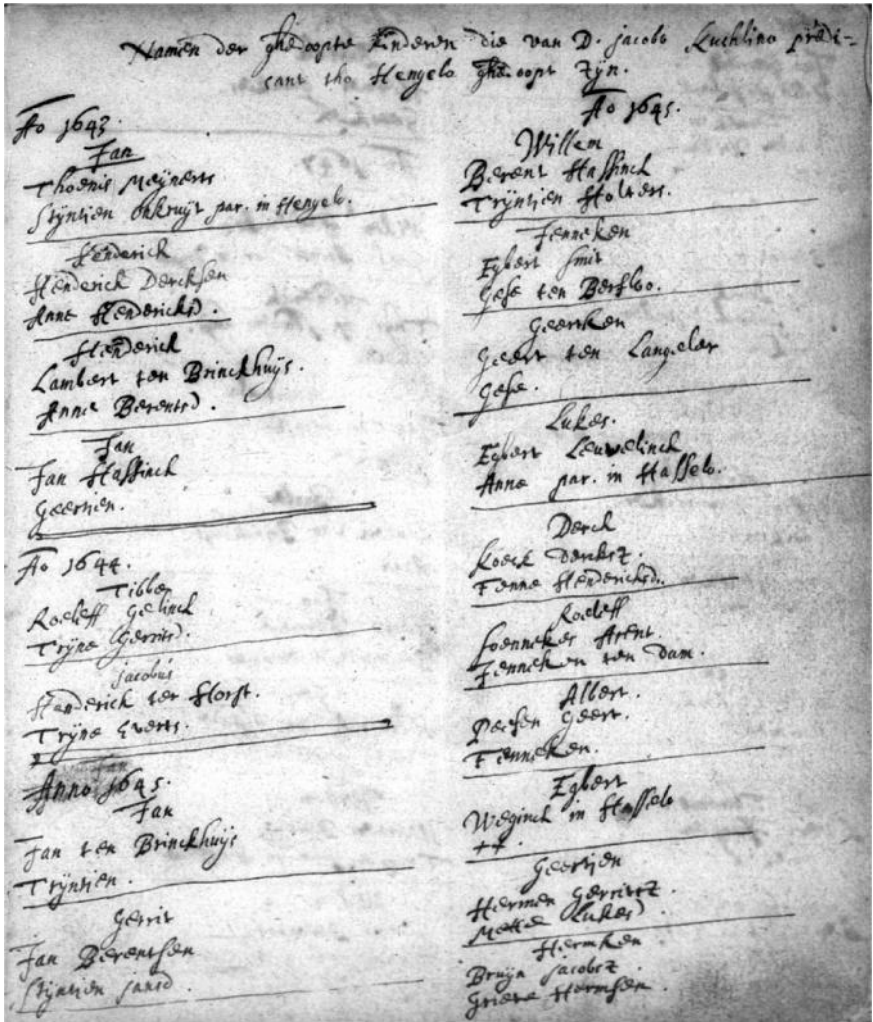 Namen der ghedoopte Kinderen die van D. jacobo Kuchlino predi=
cant tho Hengelo ghedoopt zijn.
Ao 1643.
Jan
Thoenis Meijnerts
Stijntien par. in Hengelo.
Henderick
Henderick Dercksen
Anne Hendericksd.
Henderick
Lambert ten Brinckhuijs.
Anne Berentsd.
Jan
Jan Hassinck
Geertien.
Ao 1644.
Tibbe
Roeleff Gelinck
Trijne Gerritsd.
jacobus
Henderick ter Horst.
Trijne Everts.
Anno 1645.
Jan
Jan ten Brinckhuijs
Trijntien.
Gerrit
Jan Berentsen
Stijntien jansd.
Ao 1645.
Willem
Berent Hassinck
Trijntien Holters.
Jenneken
Egbert Smit
Gese ten Berfloo.
Geertken
Geert ten Langeler
Gese.
Lukes.
Egbert Leuwelinck
Anne par. in Hasselo.
Derck
Roelf Dercksz.
Fenne Hendericksd.
Roeleff
Arent.
Jenneken ten Dam.
Albert.
Geert.
Fenneken.
Egbert
Weginck in Hasselo
++.
Geertjen
Hermen Gerritsz.
Mette Lukesd.
Hermken
Bruijn jacobsz
Griete Hermsen.